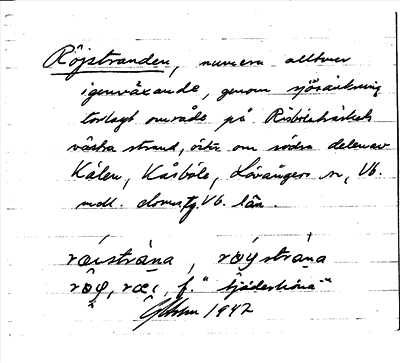 Röjstranden, numera alltmer
igenväxande, genom sjösänkning
torlagt område på Risböleträskets
västra strand, öster om södra delen av
Kålen, Kåsböle, Lövångers sn, Vb.
mdt. domsg, Vb. län.
ræistrána, røystrána
f. "fjäderhöna"
1942